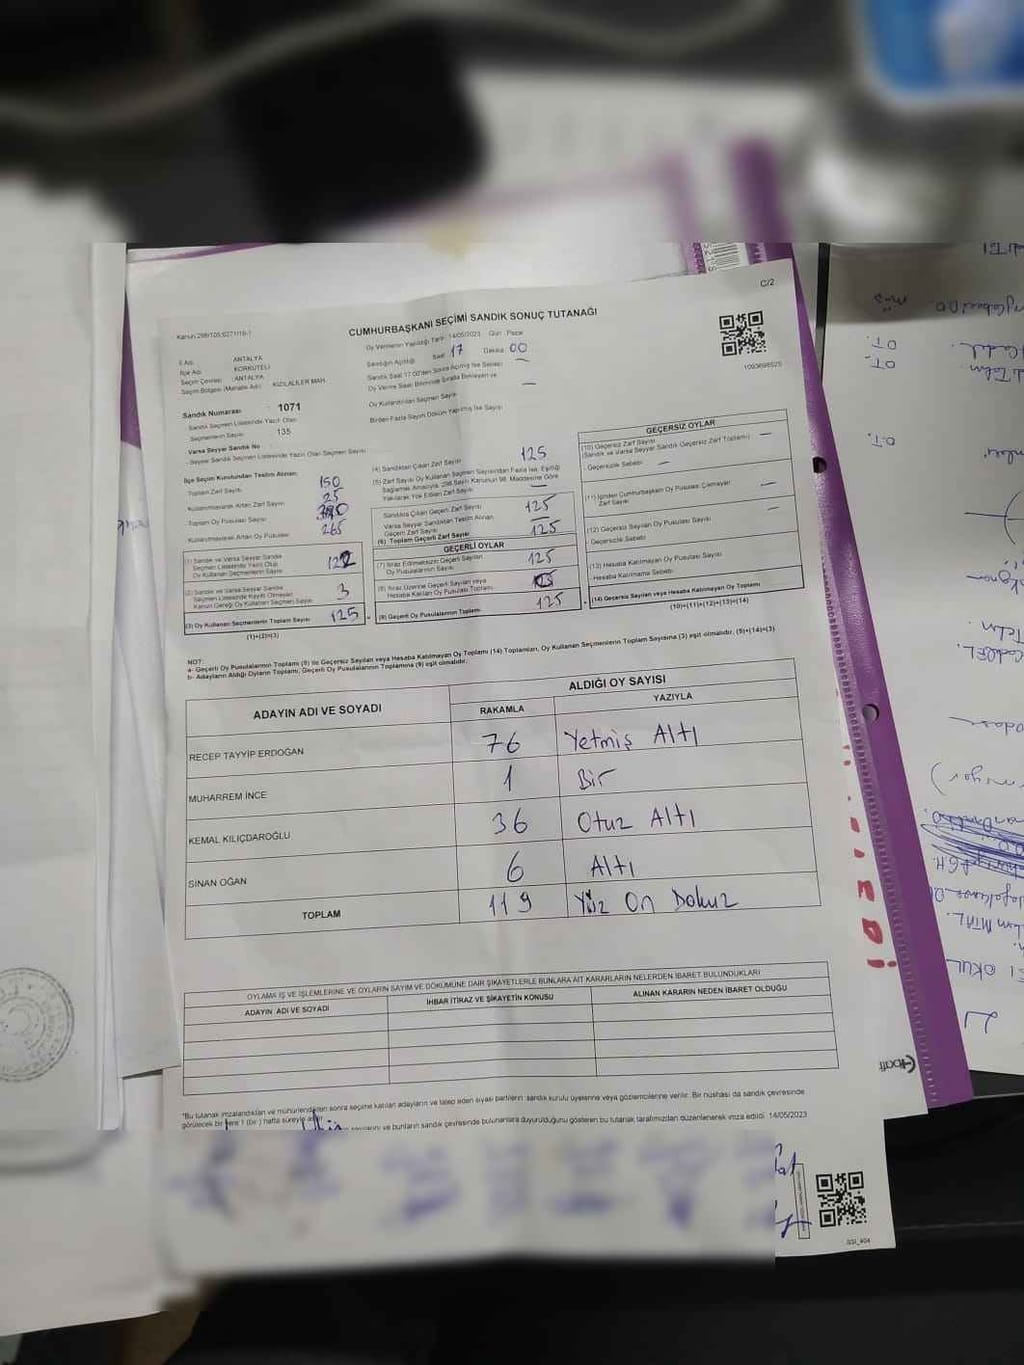 C/2
Kanun:298/105;6271/19-1
CUMHURBAŞKANI SEÇİMİ SANDIK SONUÇ TUTANAĞI
1093698525
İl Adı: ANTALYA
İlçe Adı: KORKUTELİ
Seçim Çevresi: ANTALYA
Seçim Bölgesi (Mahalle Adı): KIZILALİLER MAH.
Oy Vermenin Yapıldığı Tarih: 14/05/2023 Gün: Pazar
Sandığın Açıldığı Saat: 17 Dakika: 00
Sandık Saat 17:00'den Sonra Açılmış İse Sebebi
Oy Verme Saati Bitiminde Sırada Bekleyen ve —
Oy Kullandırılan Seçmen Sayısı
Birden Fazla Sayım Döküm Yapılmış İse Sayısı
Sandık Numarası : 1071
Sandık Seçmen Listesinde Yazılı Olan
Seçmenlerin Sayısı : 135
Varsa Seyyar Sandık No :
- Seyyar Sandık Seçmen Listesinde Yazılı Olan Seçmen Sayısı
İlçe Seçim Kurulundan Teslim Alınan:
Toplam Zarf Sayısı 150
Kullanılmayarak Artan Zarf Sayısı 25
Toplam Oy Pusulası Sayısı
Kullanılmayarak Artan Oy Pusulası 265
(1) Sandık ve Varsa Seyyar Sandık
Seçmen Listesinde Yazılı Olup
Oy Kullanan Seçmenlerin Sayısı 122
(2) Sandık ve Varsa Seyyar Sandık
Seçmen Listesinde Kayıtlı Olmayan
Kanun Gereği Oy Kullanan Seçmen Sayısı 3
(3) Oy Kullanan Seçmenlerin Toplam Sayısı 125
(1)+(2)=(3)
(4) Sandıktan Çıkan Zarf Sayısı 125
(5) Zarf Sayısı Oy Kullanan Seçmen Sayısından Fazla İse, Eşitliği
Sağlamak Amacıyla, 298 Sayılı Kanunun 98. Maddesine Göre
Yakılarak Yok Edilen Zarf Sayısı —
Sandıkta Çıkan Geçerli Zarf Sayısı 125
Varsa Seyyar Sandıktan Teslim Alınan
Geçerli Zarf Sayısı —
(6) Toplam Geçerli Zarf Sayısı 125
GEÇERLİ OYLAR
(7) İtiraz Edilmeksizin Geçerli Sayılan
Oy Pusulalarının Sayısı 125
(8) İtiraz Üzerine Geçerli Sayılan veya
Hesaba Katılan Oy Pusulaları Toplamı
(9) Geçerli Oy Pusulalarının Toplamı 125
GEÇERSİZ OYLAR
(10) Geçersiz Zarf Sayısı
(Sandık ve Varsa Seyyar Sandık Geçersiz Zarf Toplamı) —
-Geçersizlik Sebebi: —
(11) İçinden Cumhurbaşkanı Oy Pusulası Çıkmayan
Zarf Sayısı —
(12) Geçersiz Sayılan Oy Pusulası Sayısı —
-Geçersizlik Sebebi:
(13) Hesaba Katılmayan Oy Pusulası Sayısı
-Hesaba Katılmama Sebebi:
(14) Geçersiz Sayılan veya Hesaba Katılmayan Oy Toplamı
(10)+(11)+(12)+(13)=(14)
NOT:
a- Geçerli Oy Pusulalarının Toplamı (9) ile Geçersiz Sayılan veya Hesaba Katılmayan Oy Toplamı (14) Toplamları, Oy Kullanan Seçmenlerin Toplam Sayısına (3) eşit olmalıdır. (9)+(14)=(3)
b- Adayların Aldığı Oyların Toplamı, Geçerli Oy Pusulalarının Toplamına (9) eşit olmalıdır.
ADAYIN ADI VE SOYADI
ALDIĞI OY SAYISI
RAKAMLA YAZIYLA
RECEP TAYYİP ERDOĞAN 76 Yetmiş Altı
MUHARREM İNCE 1 Bir
KEMAL KILIÇDAROĞLU 36 Otuz Altı
SİNAN OĞAN 6 Altı
TOPLAM 119 Yüz On Dokuz
OYLAMA İŞ VE İŞLEMLERİNE VE OYLARIN SAYIM VE DÖKÜMÜNE DAİR ŞİKAYETLERLE BUNLARA AİT KARARLARIN NELERDEN İBARET BULUNDUKLARI
ADAYIN ADI VE SOYADI İHBAR İTİRAZ VE ŞİKAYETİN KONUSU ALINAN KARARIN NEDEN İBARET OLDUĞU
*Bu tutanak imzalandıktan ve mühürlendikten sonra seçime katılan adayların ve talep eden siyasi partilerin sandık kurulu üyelerine veya gözlemcilerine verilir. Bir nüshası da sandık çevresinde
görülecek bir yere 1 (bir) hafta süreyle asılır.
ve bunların sandık çevresinde bulunanlara duyurulduğunu gösteren bu tutanak tarafımızdan düzenlenerek imza edildi. 14/05/2023